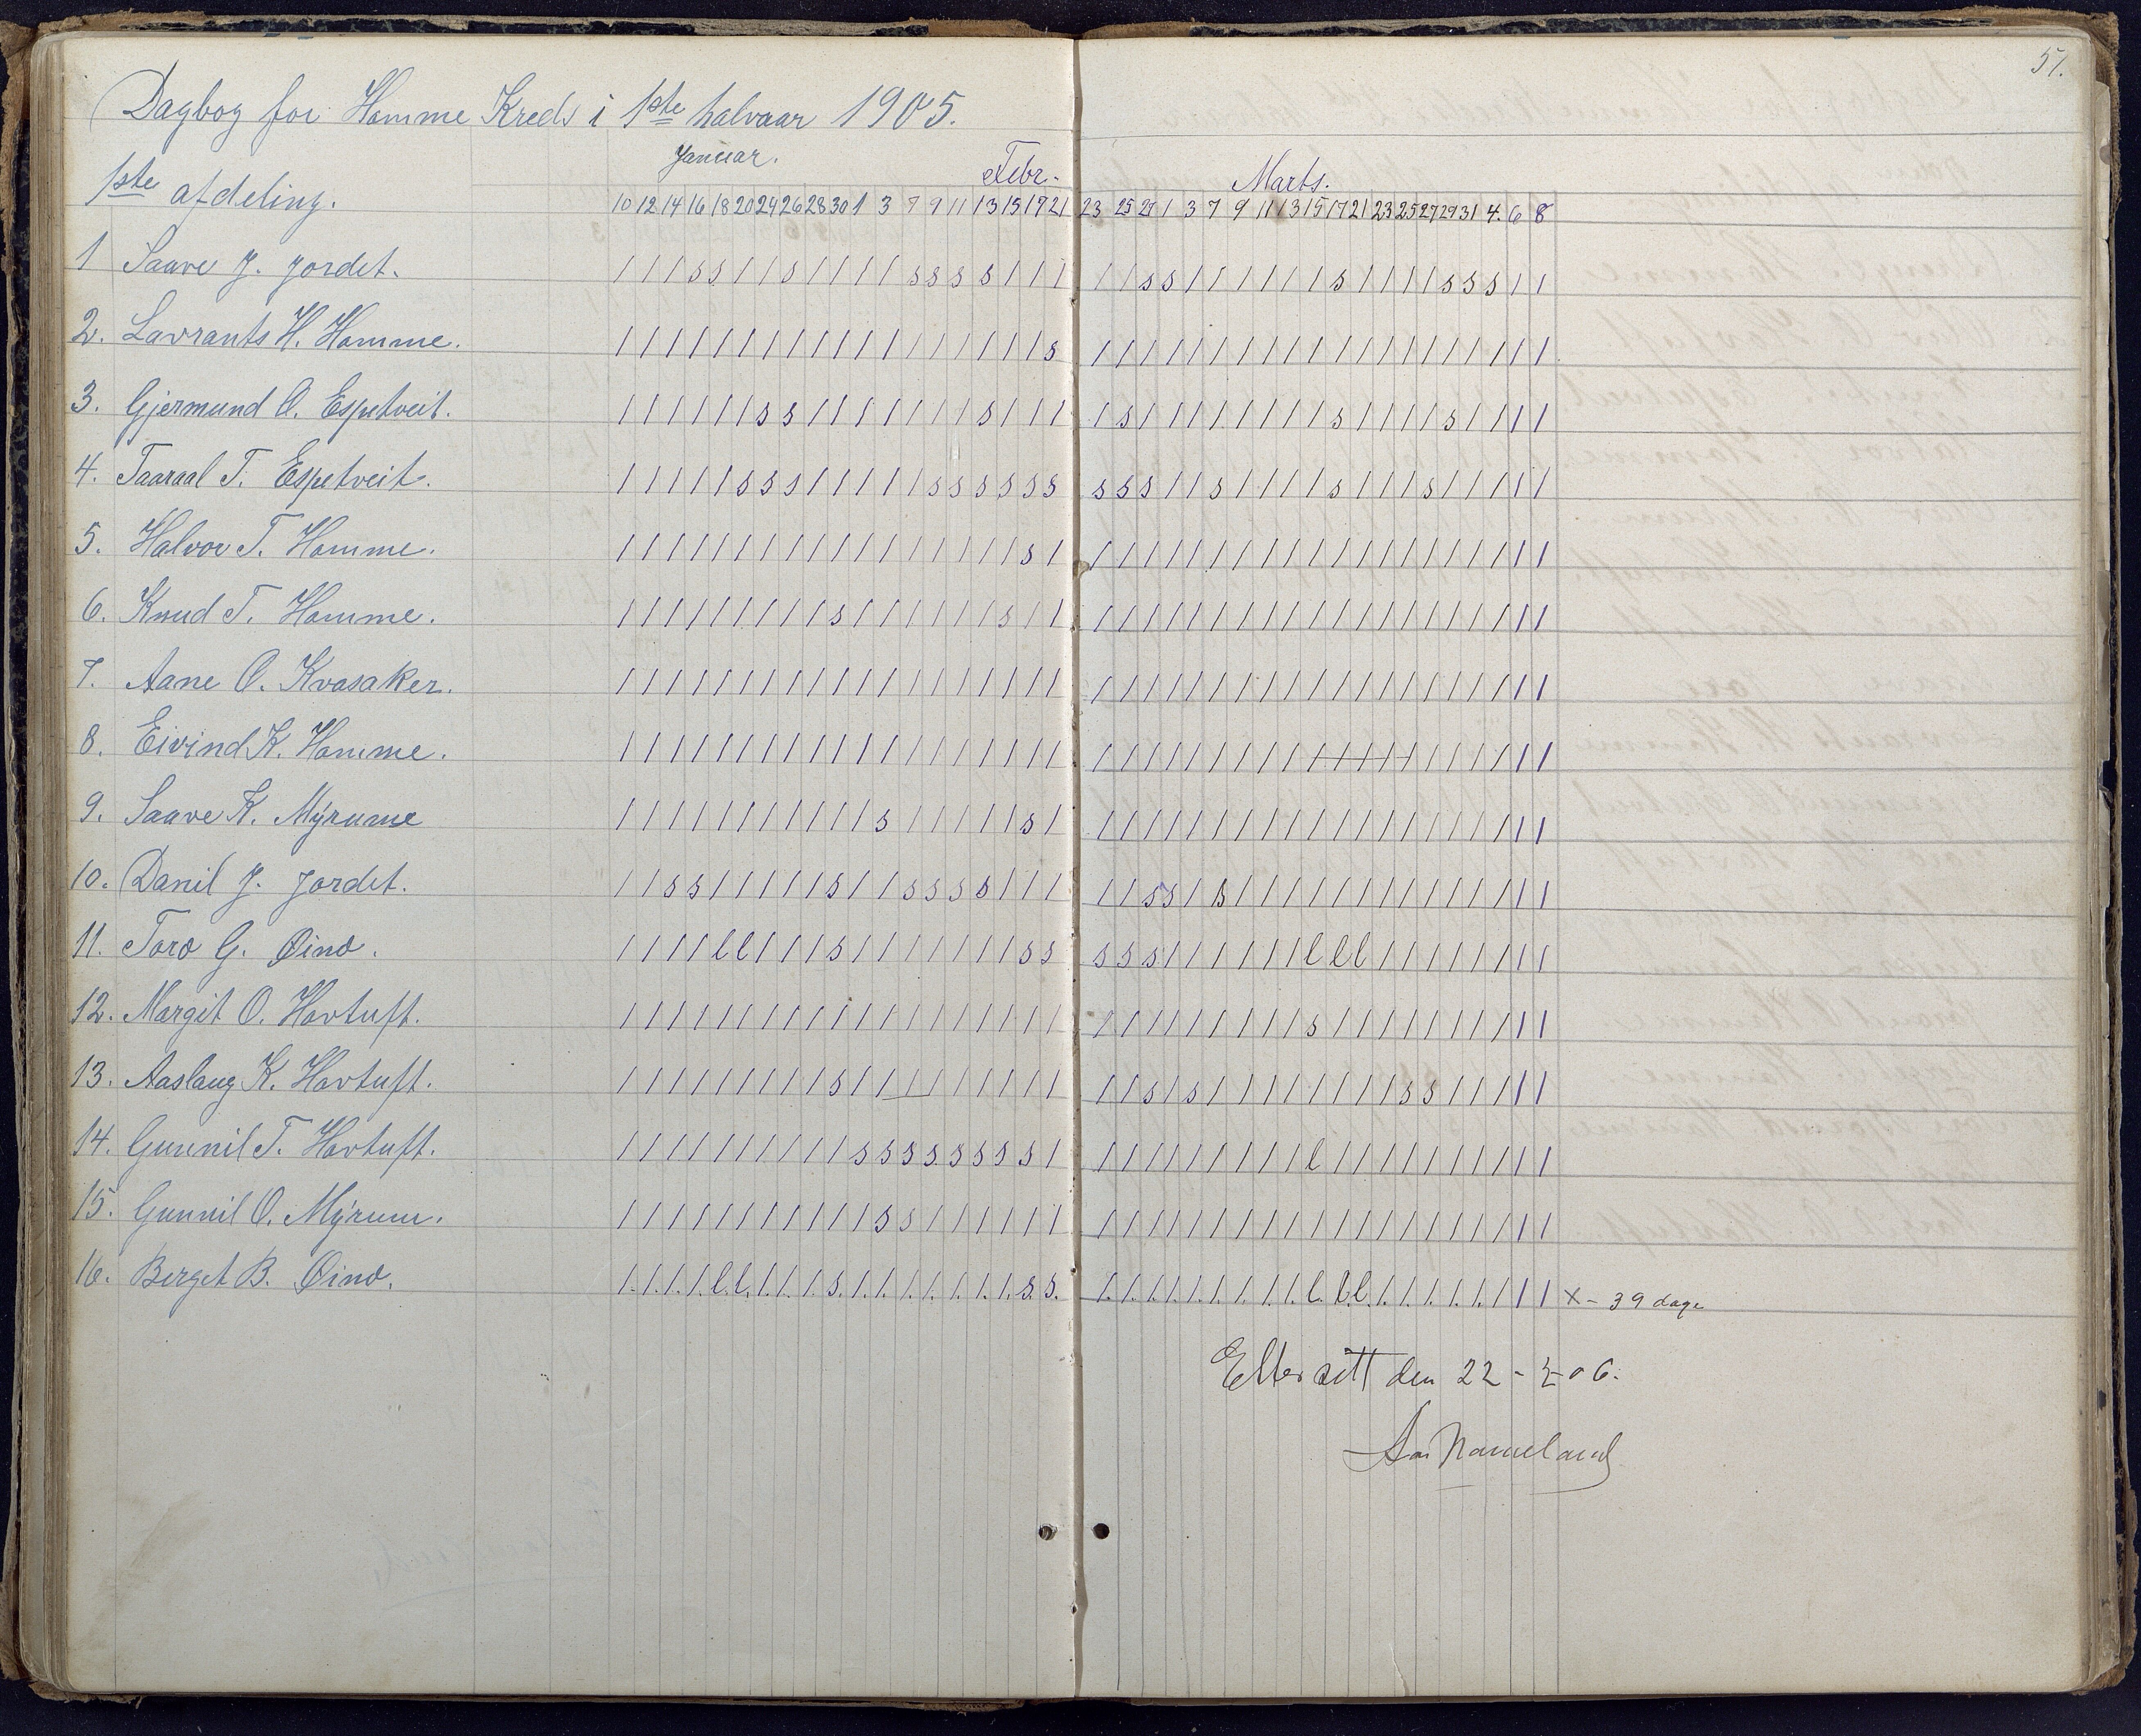 57.
Dagbog for Homme Kreds i 1ste halvaar 1905.
Januar. Febr. Marts.
1ste afdeling. 10 12 14 16 18 20 24 26 28 30 1 3 7 9 11 13 15 17 21 23 25 27 1 3 7 9 11 13 15 17 21 23 25 27 29 31 4. 6 8
1 Saave J. Jordet. / / / s s / / s / / / / s s s s / / / / / s s / / / / / / / s / / / / s s s / /
2. Lavrants H. Homme. / / / / / / / / / / / / / / / / / / s / / / / / / / / / / / / / / / / / / / /
3. Gjermund O. Espetveit. / / / / / / s s / / / / / / / s / / / / s / / / / / / / / / s / / / / s / / / /
4. Taaraal T. Espetveit. / / / / / s s s / / / / / s s s s s s s s s / / s / / / / s / / / s / / / / /
5. Halvor T. Homme. / / / / / / / / / / / / / / / / / s / / / / / / / / / / / / / / / / / / / / /
6. Knud T. Homme. / / / / / / / / / s / / / / / / s / / / / / / / / / / / / / / / / / / / / / /
7. Aane O. Kvasaker. / / / / / / / / / / / / / / / / / / / / / / / / / / / / / / / / / / / / / / /
8. Eivind K. Homme. / / / / / / / / / / / / / / / / / / / / / / / / / / / / / / / / / / / / / / /
9. Saave K. Mýrume / / / / / / / / / / / s / / / / / s / / / / / / / / / / / / / / / / / / / / /
10. Danil J. Jordet. / / s s / / / / / s / / s s s s / / / / / s s / s / / / / / / / / / / / / / /
11. Toro G. Øino. / / / / l l / / / s / / / / / / / s s s s s / / / / / / l l l / / / / / / / /
12. Margit O. Hovtuft. / / / / / / / / / / / / / / / / / / / / / / / / / / / / s / / / / / / / / / /
13. Aaslaug K. Hovtuft. / / / / / / / / / s / / / / / / / / / / / s / s / / / / / / / / s s / / / / /
14. Gunnil T. Hovtuft. / / / / / / / / / / s s s s s s s s / / / / / / / / / / l / / / / / / / / / /
15. Gunnil O. Mýrum. / / / / / / / / / / / s s / / / / / / / / / / / / / / / / / / / / / / / / / /
16. Berget B. Øino. / / / / l l / / / s / / / / / / / s s / / / / / / / / / l l l / / / / / / / / x - 39 dage
Ettersett den 22 - - 06.